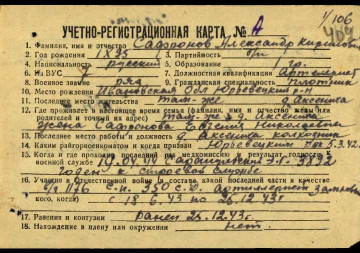 1/106
УЧЕТНО-РЕГИСТРАЦИОННАЯ КАРТА № А
1. Фамилия, имя и отчество Сафронов Александр
2. Год рождения 1895 3. Партийность б/п
4. Национальность русский 5. Образование 1 гр.
6. На ВУС 7 7. Должностная квалификация артиллерист
8. Военное звание ряд 9. Гражданская специальность плотник
10. Место рождения Ивановская обл Юрьевецкий р-н
11. Последнее место жительства там-же д Аксениха
12. Где проживает в настоящее время семья (фамилия, имя, отчество жены или родителей и точный их адрес) там-же д Аксениха
жена Сафронова Евгения Николаевна
13. Последнее место работы и должность д Аксениха колхозник
14. Каким райгорвоенкоматом и когда призван Юрьевецким 5.3.42.
15. Когда и где проходил последний медкомиссию и результат, годность к
военной службе 9.04.44 3892
Годен к строевой службе
16. Участие в Отечественной войне (в составе какой последней части в качестве
кого, когда) 350 с.д. артиллерист
с 18.6.43 по 25.12.43г
17. Ранения и контузии ранен 25.12.43г.
18. Нахождение в плену или окружении нет.